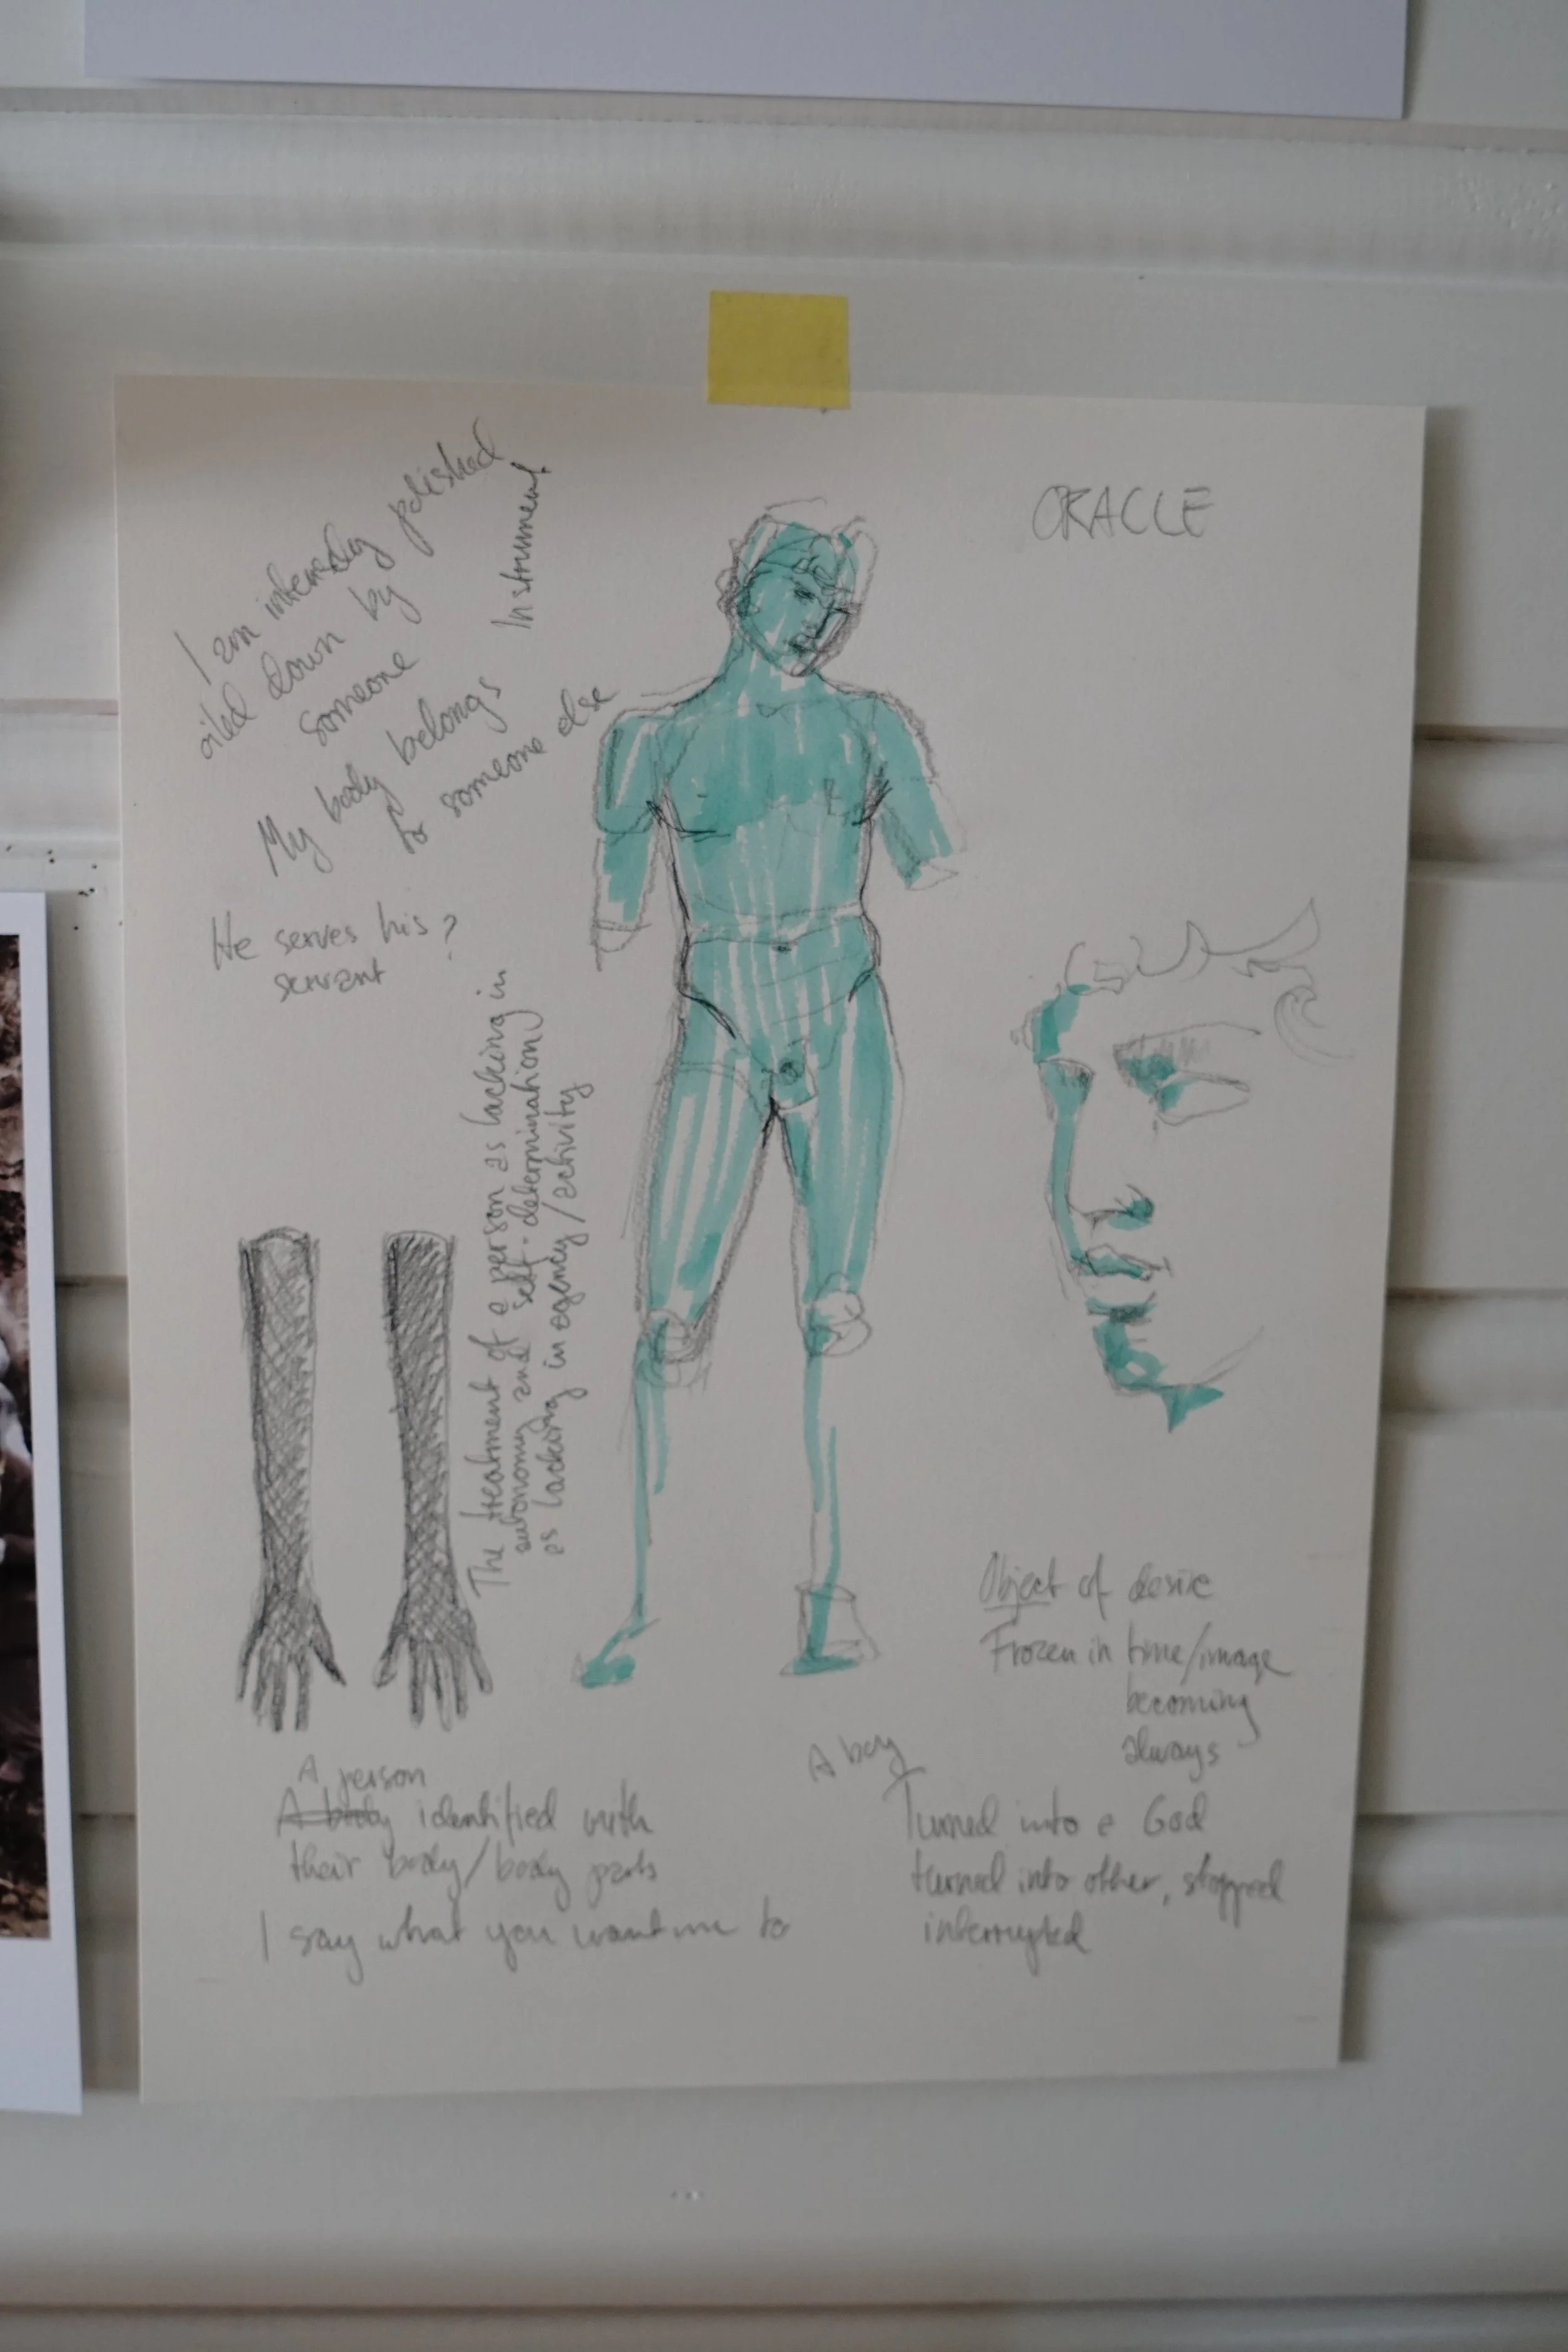 I am intensely polished
oiled down by
someone
Instrument
My body belongs
to someone else
ORACLE
He serves his ?
servant
The treatment of a person as lacking in
autonomy and self-determination
as lacking in agency/activity
Object of desire
Frozen in time/image
becoming
always
A person
A body identified with
their body/body parts
I say what you want me to
A boy
Turned into a God
turned into other, stopped
interrupted